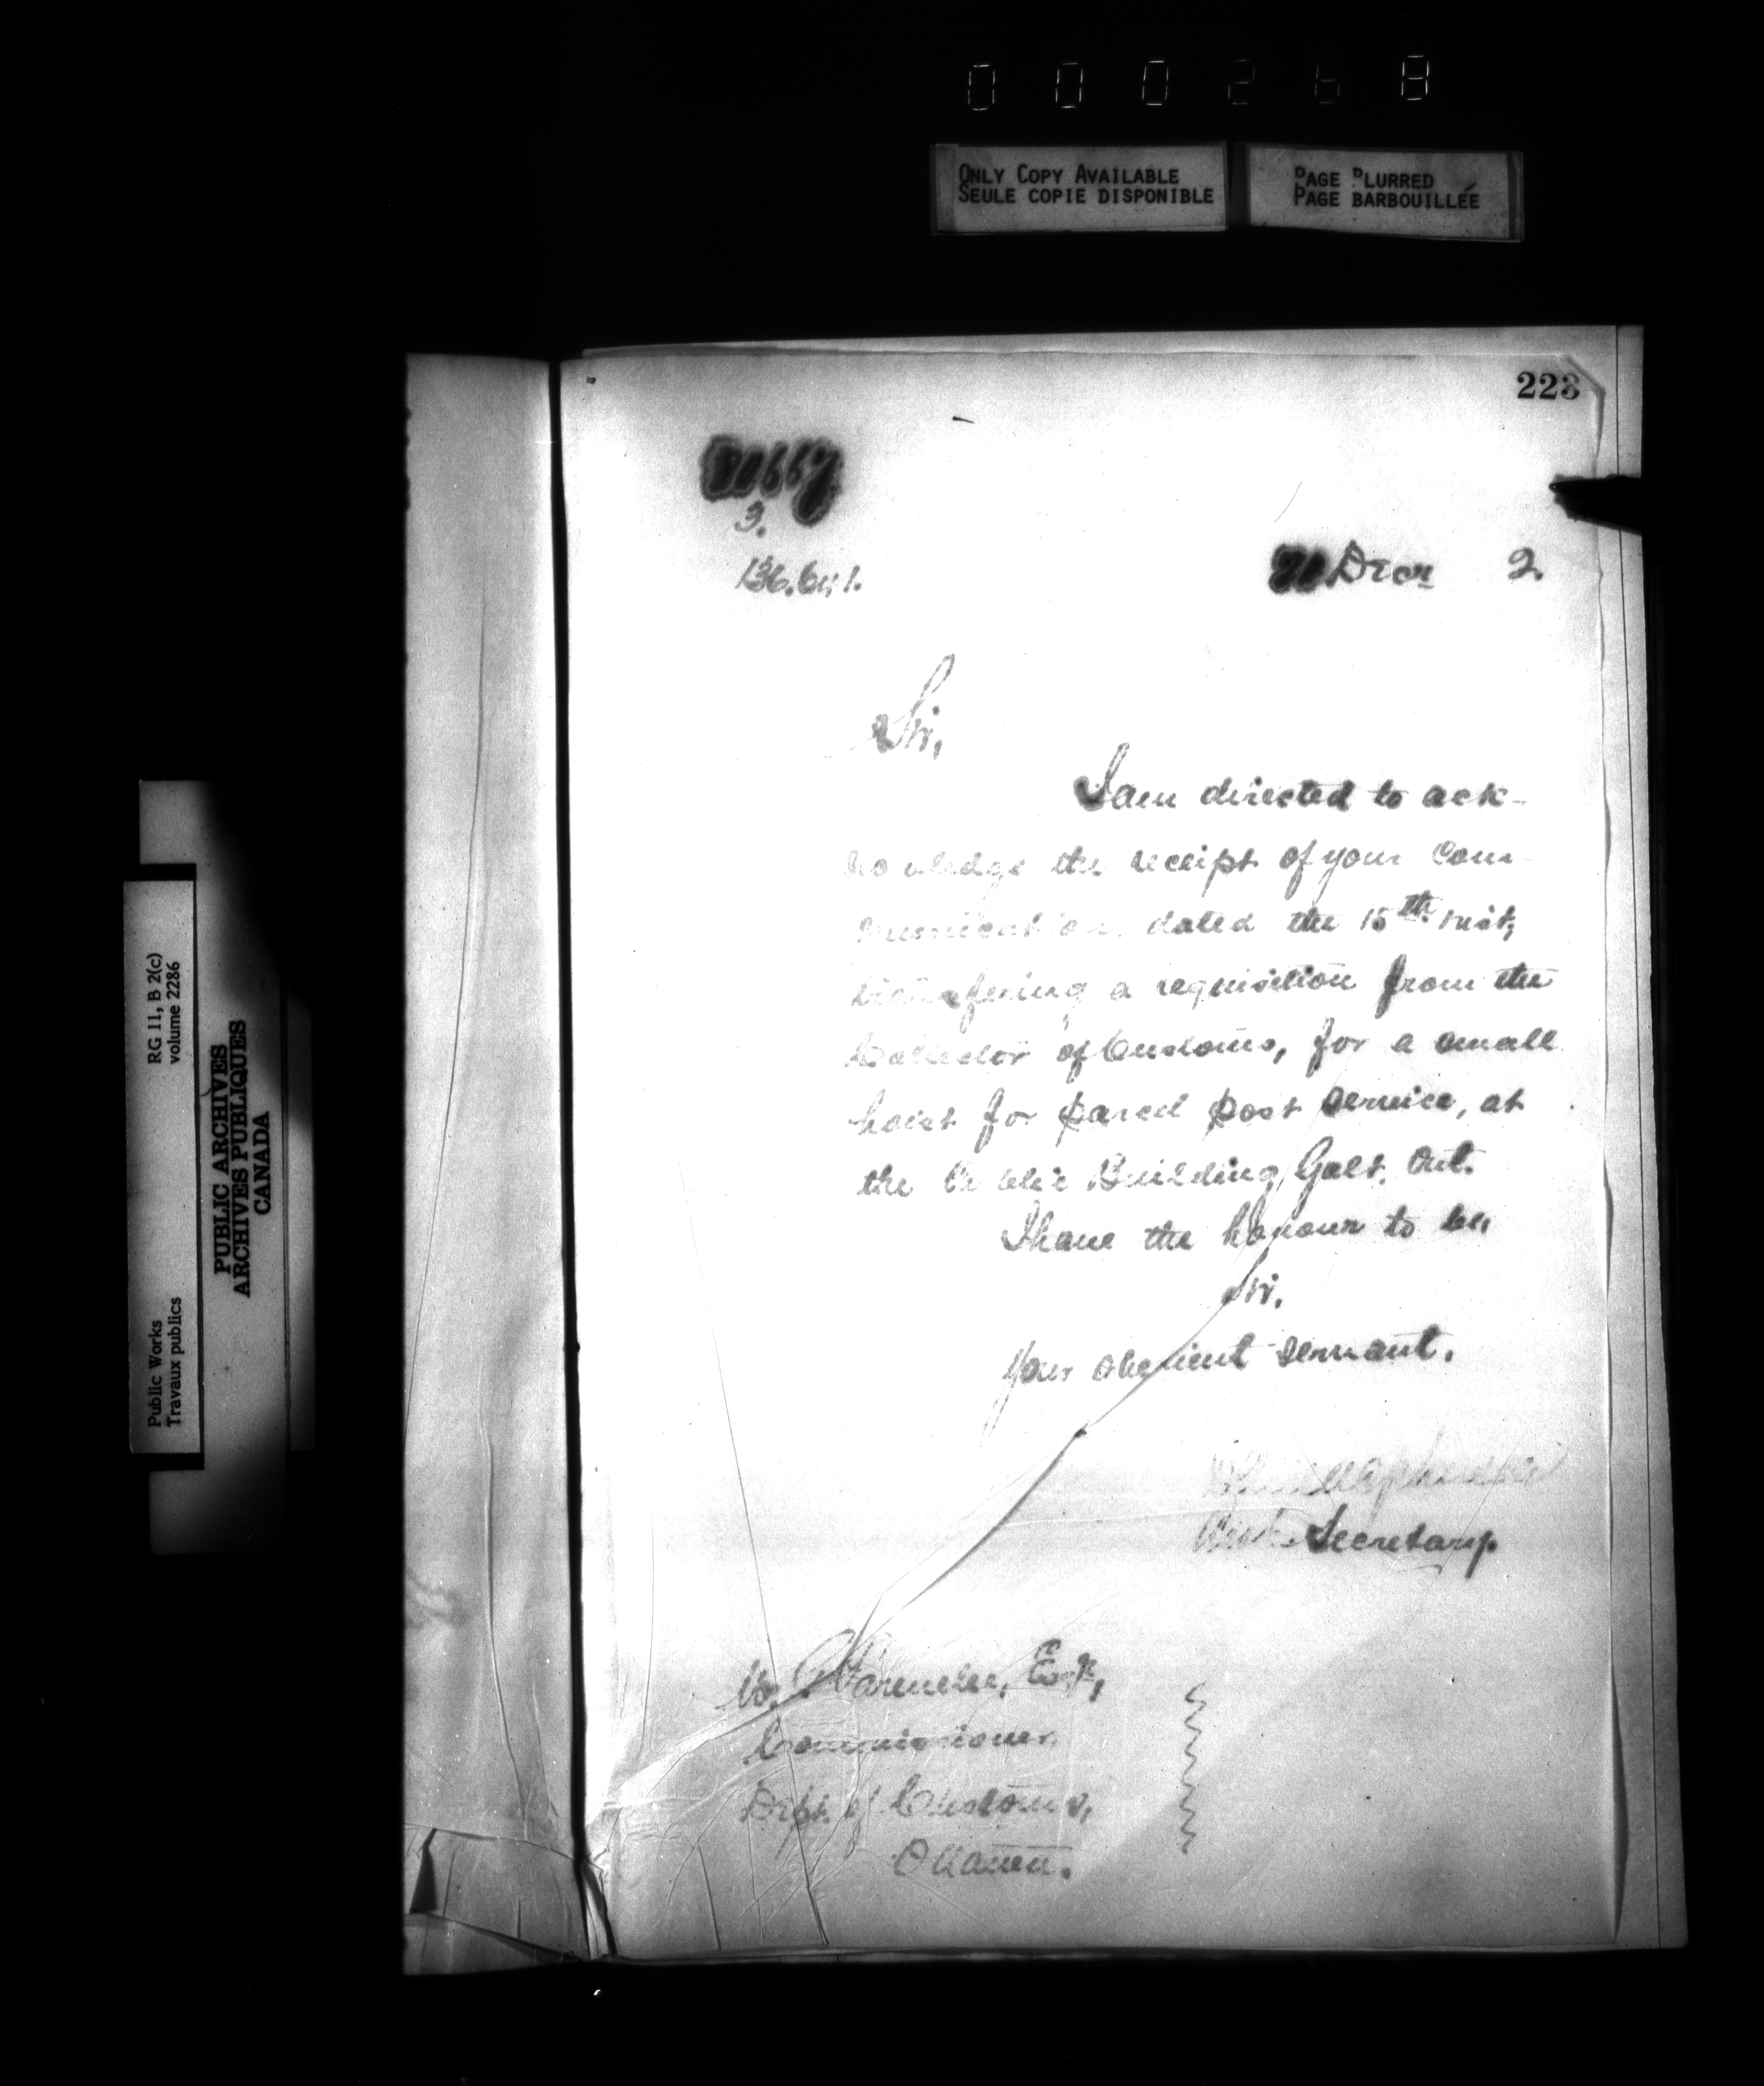 000268
ONLY COPY AVAILABLE
SEULE COPIE DISPONIBLE
PAGE BLURRED
PAGE BARBOUILLÉE
223
3.
Decr 2.
Sir,
I am directed to ack-
nowledge the receipt of your com-
munication dated the 15th inst,
transfering a requisition from the
Collector of Customs, for a small
hoist for parcel post service, at
the Public Building, Galt, Ont.
I have the honour to be,
Sir.
Your obedient servant.
Secretary.
Parmelee, Esqr,
Commissioner
Dept. of Customs,
Ottawa.
Public Works
Travaux publics
RG 11, B 2(c)
volume 2286
PUBLIC ARCHIVES
ARCHIVES PUBLIQUES
CANADA